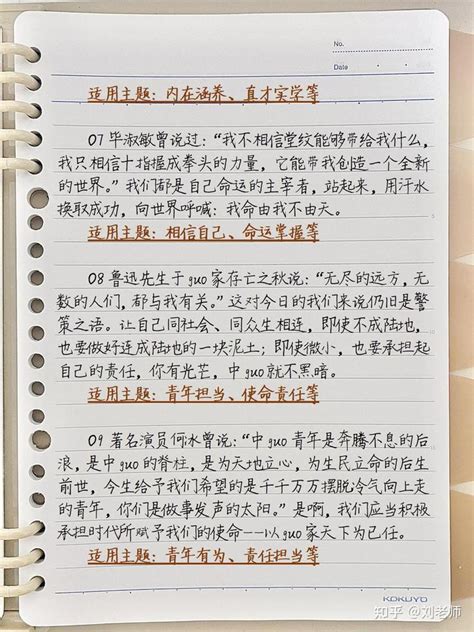 No.
Date
适用主题：内在涵养、真才实学等
07 毕淑敏曾说过：“我不相信掌纹能够带给我什么，
我只相信十指握成拳头的力量，它能带我创造一个全新
的世界。”我们都是自己命运的主宰者，站起来，用汗水
换取成功，向世界呼喊：我命由我不由天。
适用主题：相信自己、命运掌握等
08 鲁迅先生于guo家存亡之秋说：“无尽的远方，无
数的人们，都与我有关。”这对今日的我们来说仍旧是警
策之语。让自己同社会、同众生相连，即使不成陆地，
也要做好连成陆地的一块泥土；即使微小，也要承担起
自己的责任，你有光芒，中guo就不黑暗。
适用主题：青年担当、使命责任等
09 著名演员何冰曾说：“中guo青年是奔腾不息的后
浪，是中guo的脊柱，是为天地立心，为生民立命的后生
前世，今生给予我们希望的是千千万万摆脱冷气向上走
的青年，你们是做事发声的太阳。”是啊，我们应当积极
承担时代所赋予我们的使命——以guo家天下为己任。
适用主题：青年有为、责任担当等
KOKUYO
知乎 @刘老师